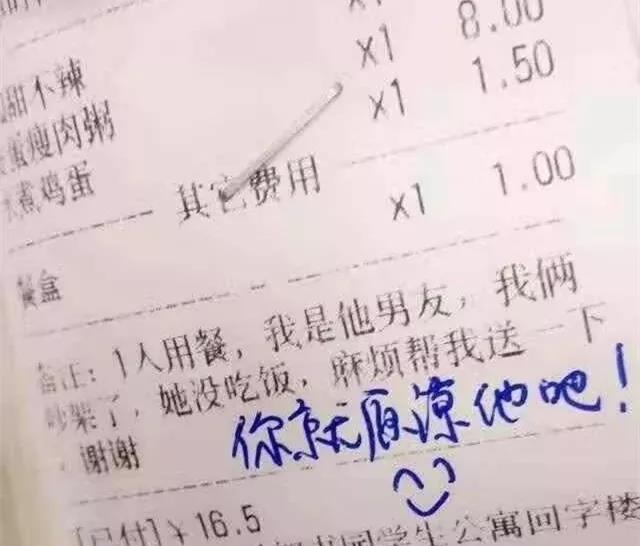 x1 8.00
甜不辣 x1 1.50
蛋瘦肉粥 x1
煮鸡蛋
其它费用
x1 1.00
餐盒
备注：1人用餐，我是他男友，我俩
吵架了，她没吃饭，麻烦帮我送一下
，谢谢
你就原谅他吧！
[已付]￥16.5
学生公寓回字楼